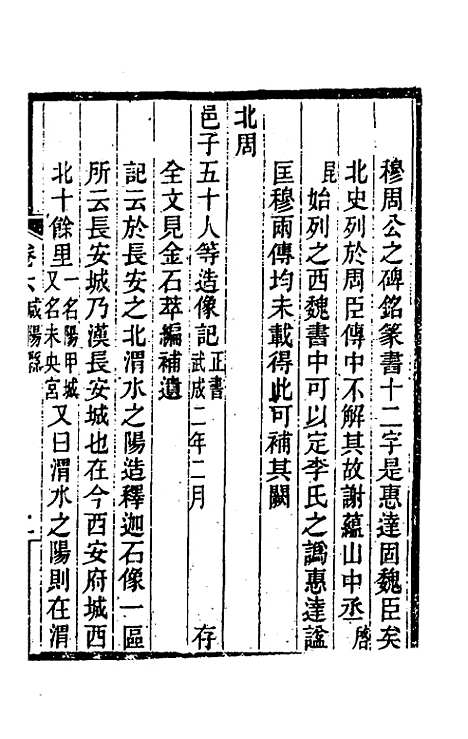 穆周公之碑銘篆書十二字是惠達固魏臣矣
北史列於周臣傳中不解其故謝蘊山中丞啓
昆始列之西魏書中可以定李氏之譌惠達謚
匡穆兩傳均未載得此可補其闕
北周
邑子五十人等造像記正書武成二年二月 存
全文見金石萃編補遺
記云於長安之北渭水之陽造釋迦石像一區
所云長安城乃漢長安城也在今西安府城西
北十餘里一名陽甲城又名未央宮又曰渭水之陽則在渭
卷六咸陽縣